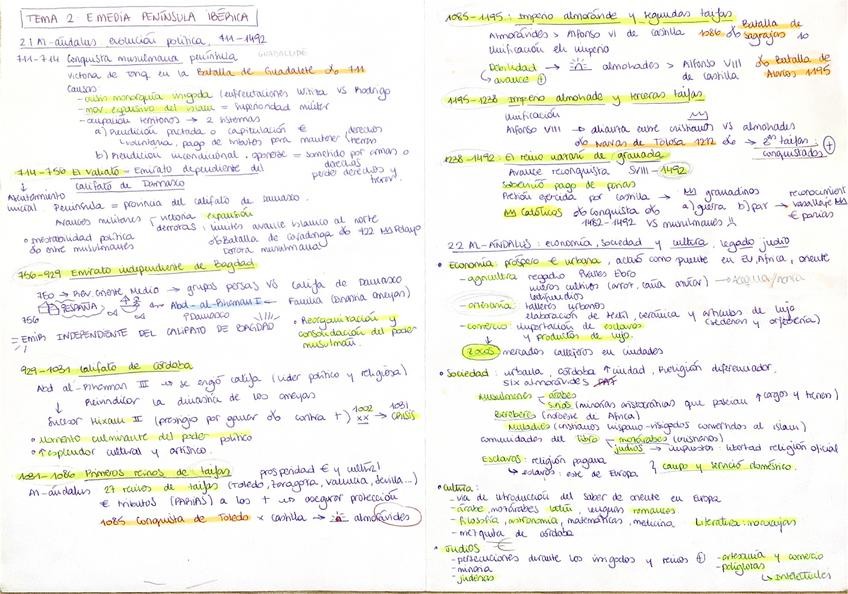 TEMA 2 E MEDIA PENÍNSULA IBÉRICA
2.1 Al-ándalus evolución política, 711-1492
711-714 Conquista musulmana península GUADALUPE
Victoria de Tariq en la Batalla de Guadalete 711
Causas
- crisis monarquía visigoda (enfrentaciones Witiza VS Rodrigo
- mov. expansivo del islam = superioridad militar
- ocupación territorios → 2 sistemas
a) Rendición pactada o capitulación € derechos
voluntaria, pago de tributos para mantener tierras
b) Rendición incondicional, oponerse = sometido por armas o
perder derechos y tierras
714-756 El valiato = Emirato dependiente del
califato de Damasco
Península = provincia del califato de Damasco
Avances militares victoria expansión
derrotas: límites avance islámico al norte
Batalla de Covadonga 722 Pelayo
• inestabilidad política
entre musulmanes
756-929 Emirato independiente de Bagdad
750 → Rev. Oriente Medio → grupos persas VS califa de Damasco
ESPAÑA Damasco ← Abd-al-Rhaman I ← Familia (dinastía omeyas)
756
= EMIR INDEPENDIENTE DEL CALIFATO DE BAGDAD
• Reorganización y
consolidación del poder
musulmán.
929-1031 Califato de córdoba
Abd al-Rhaman III → se erigió califa (líder político y religioso)
Reivindicar la dinastía de los omeyas
Sucesor Hixam II (prestigio por ganar contra +) 1002 1031 CRISIS
• Momento culminante del poder político
• ↑ esplendor cultural y artístico.
1031-1086 Primeros reinos de taifas prosperidad € y cultural
Al-ándalus 27 reinos de taifas (Toledo, Zaragoza, Valencia, Sevilla...)
€ tributos (PARIAS) a los + asegurar protección
1085 Conquista de Toledo x Castilla → almorávides
1085-1195: Imperio almorávide y segundas taifas
Almorávides > Alfonso VI de Castilla 1086 Batalla de
Sagrajas
Unificación imperio
Debilidad → almohades > Alfonso VIII Batalla de
avance + de Castilla Alarcos 1195
1195-1238 Imperio almohade y terceras taifas
Unificación
Alfonso VIII → alianza entre cristianos VS almohades
Navas de Tolosa 1212 → taifas:
conquistados +
1238-1492: El reino nazarí de granada
Avance reconquista SVIII-1492
Sobrevivió pago de parias
Presión ejercida por Castilla → granadinos reconocimiento
a) guerra b) paz → vasallaje
€ parias
Católicos conquista
1482-1492 VS musulmanes
2.2 AL-ÁNDALUS: economía, sociedad y cultura, legado judío
• Economía: próspero € urbana, actuó como puente en EU, África, oriente
- agricultura regadío Ebro
nuevos cultivos (arroz, caña azúcar) → Acequia/noria
latifundios
- artesanía: talleres urbanos
elaboración de textil, cerámica y artículos de lujo
(sederías y orfebrería)
- comercio: importación de esclavos
y productos de lujo.
Zocos mercados callejeros en ciudades
• Sociedad: urbana, córdoba ↑ ciudad, Religión diferenciador.
SIX almorávides
Musulmanes árabes
sirios (minorías aristocráticas que poseían ↑ cargos y tierras)
Bereberes (noroeste de África)
Muladíes (cristianos hispano-visigodos convertidos al islam)
comunidades del libro mozárabes (cristianos)
judíos → impuestos: libertad religión oficial
Esclavos: religión pagana
↳ eslavos: este de Europa } campo y servicio doméstico.
• Cultura:
- vía de introducción del saber de oriente en Europa
- árabe, mozárabes latín, lenguas romances.
- filosofía, astronomía, matemáticas, medicina Literatura: moaxajas
- mezquita de córdoba
• Judíos €
- persecuciones durante los visigodos y reinos + - artesanía y comercio
- minoría - políglotas
- juderías ↳ intelectuales